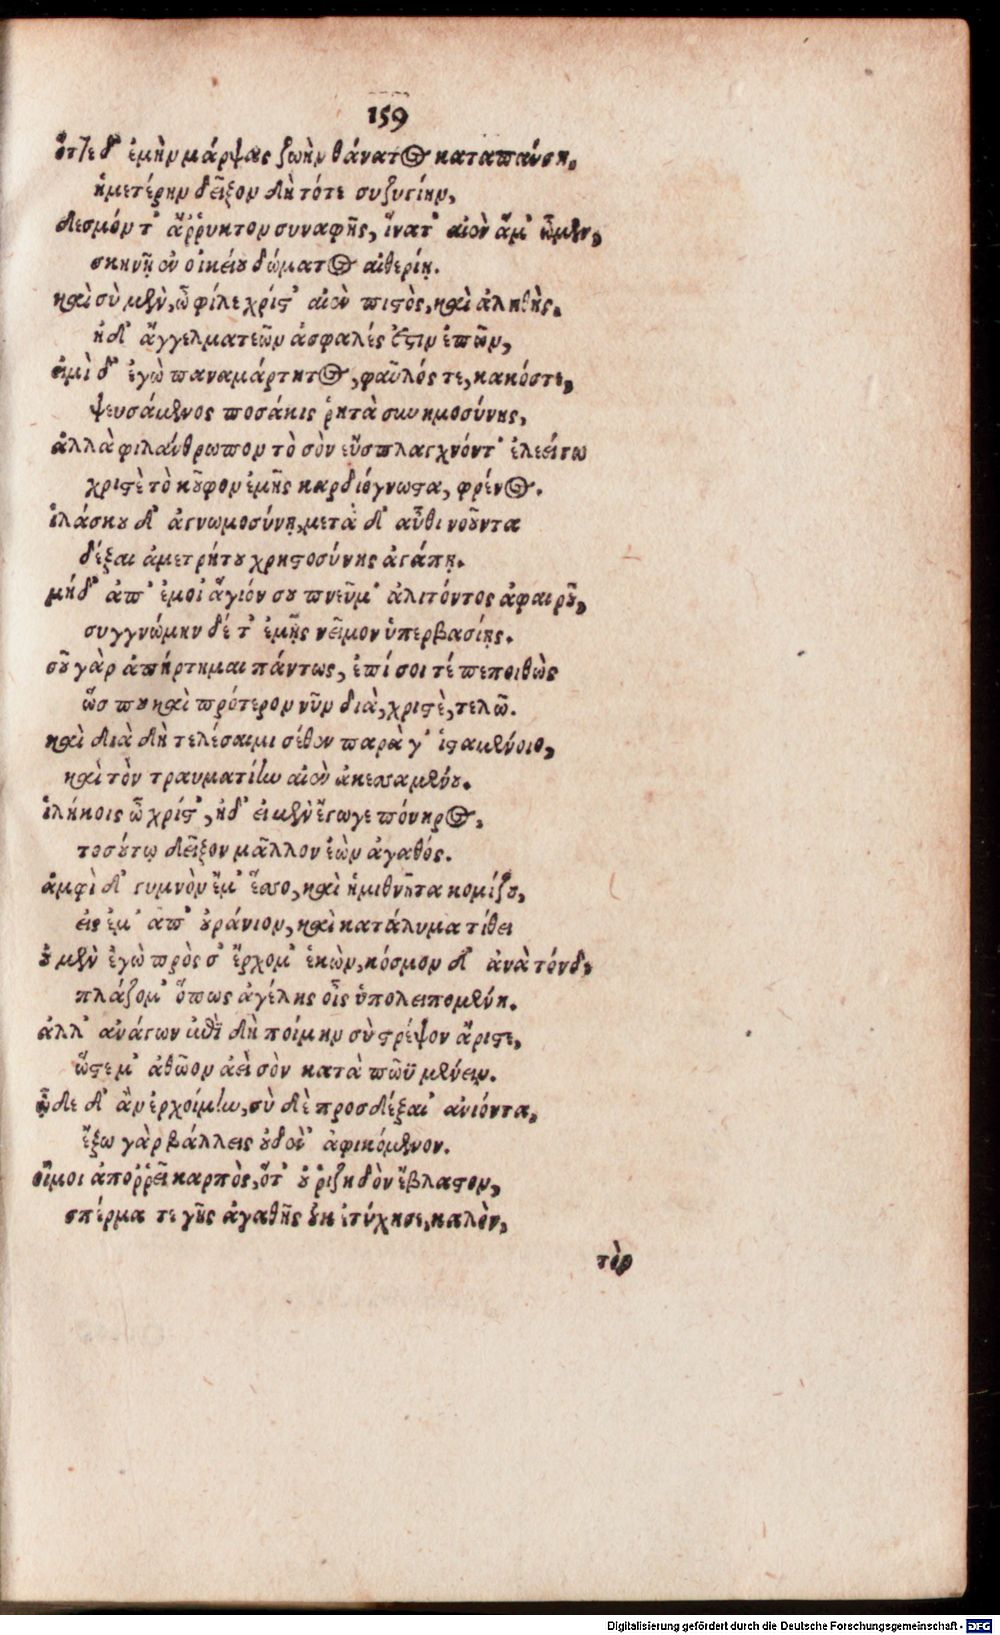 159
ὅτε δ' ἐμὴν μάρψας ζωὴν θάνατος καταπαύσῃ,
ἡμετέρην δεῖξον δὴ τότε συζυγίην,
δεσμόν τ' ἄῤῥυκτον συναφῆς, ἵνατ' αἰὲν ἅμ' ὦμεν,
σκηνῇ ἐν οἰκείου δώματος αἰθερίῃ.
καὶ σὺ μὲν, ὦ φίλε χρίς' αἰὲν πιςὸς, καὶ ἀληθὴς,
ἠδ' ἄγγελματεῶν ἀσφαλές ἐςιν ἐπῶν,
εἰμὶ δ' ἐγὼ παναμάρτητος, φαῦλός τε, κακόςτε,
ψευσάμενος ποσάκις ῥητὰ συνημοσύνης,
ἀλλὰ φιλάνθρωπον τὸ σὸν εὔσπλαγχνόντ' ἐλεείτω
χριςὲ τὸ κοῦφον ἐμῆς καρδιόγνωςα, φρένος.
ἱλάσκου δ' ἀγνωμοσύνῃ, μετὰ δ' αὖθι νοοῦντα
δέξαι ἀμετρήτου χρηςοσύνης ἀγάπῃ.
μήδ' ἀπ' ἐμοὶ ἅγιόν σου πνεῦμ' ἀλιτόντος ἀφαιροῦ,
συγγνώμην δέ τ' ἐμῇς νεῖμον ὑπερβασίῃς.
σοῦ γὰρ ἀπήρτημαι πάντως, ἐπί σοι τέ πεποιθὼς
ὥς που καὶ πρότερον νῦν διὰ, χριςὲ, τελῶ.
καὶ διὰ δὴ τελέσαιμι σέθεν παρὰ γ' ἱςαμένοιο,
καὶ τὸν τραυματίην αἰὲν ἀκεσσαμένου.
ἱλήκοις ὦ χρίς', ἠδ' εἰ μὲν ἔγωγε πόνηρος,
τοσούτῳ δεῖξον μᾶλλον ἐὼν ἀγαθός.
ἀμφὶ δ' γυμνὸν ἔμ' ἕσσο, καὶ ἡμιθνῆτα κομίζου,
εἰς ἐμ' ἀπ' οὐράνιον, καὶ κατάλυμα τίθει
οὐ μὲν ἐγὼ πρὸς σ' ἔρχομ' ἑκὼν, κόσμον δ' ἀνὰ τόνδε
πλάζομ' ὅπως ἀγέλης οἶς ὑπολειπομένη.
ἀλλ' ἀνάγων ἐπὶ δὴ ποίμην σὺ ςρέψον ἄριςε,
ὥςε μ' ἀθῶον ἀεὶ σὸν κατὰ πῶϋ μένειν.
ᾧδε δ' ἂν ἐρχοίμην, σὺ δὲ προσδέξαι' ἀνιόντα,
ἔξω γὰρ βάλλεις οὐδέν' ἀφικόμενον.
οἴμοι ἀποῤῥεῖ καρπὸς, ὅτ' οὐ ῥιζηδὸν ἔβλαςον,
σπέρμα τε γῆς ἀγαθῆς οὐκ ἐτύχησε, καλὸν,
τὸν
Digitalisierung gefördert durch die Deutsche Forschungsgemeinschaft - DFG